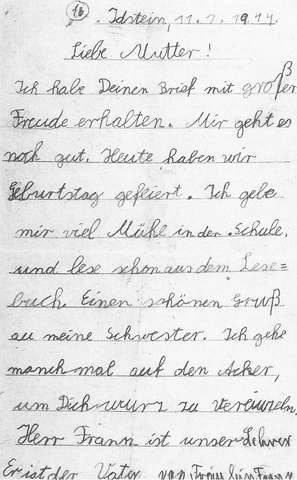 16. Idstein, 11.7.1917.
Liebe Mutter!
Ich habe Deinen Brief mit großer
Freude erhalten. Mir geht es
noch gut. Heute haben wir
Geburtstag gefeiert. Ich gebe
mir viel Mühe in der Schule,
und lese schon aus dem Lese=
buch Einen schönen Gruß
an meine Schwester. Ich gehe
manchmal auf den Acker,
um Dickwurz zu vereinzeln.
Herr Frann ist unser Lehrer
Er ist der Vater von Fräulein